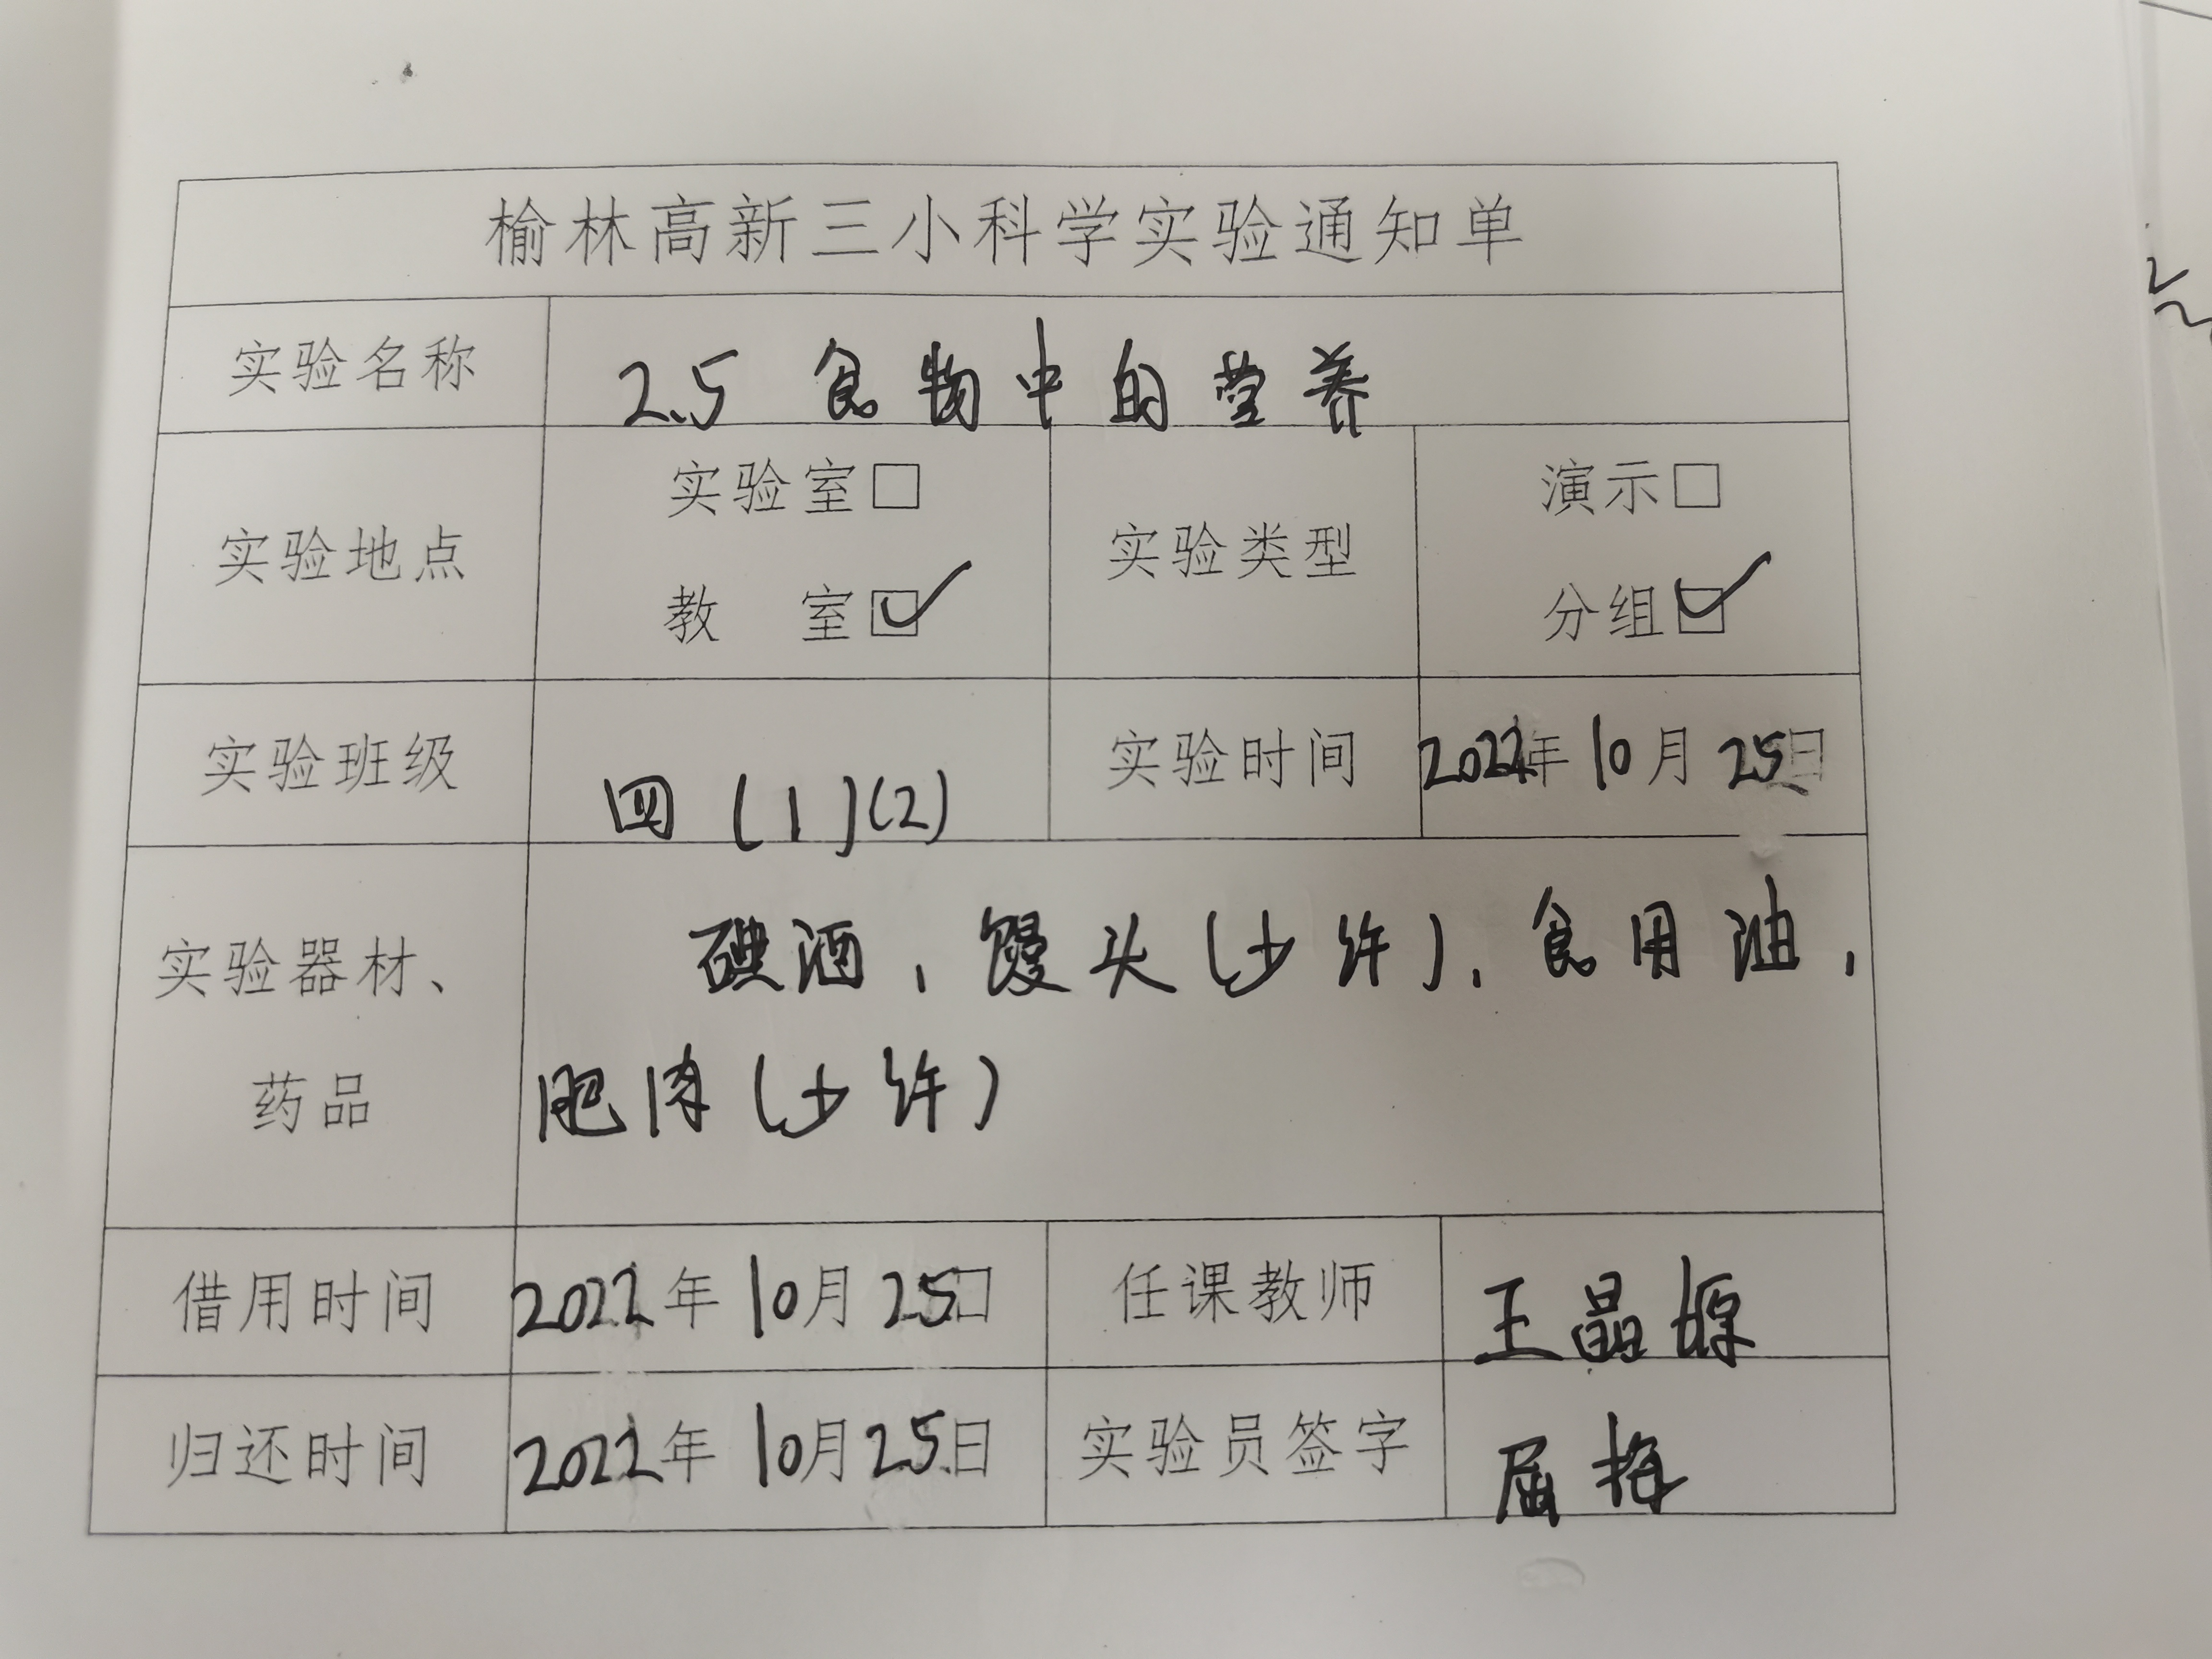 榆林高新三小科学实验通知单
实验名称 2.5 食物中的营养
实验地点 实验室□ 教 室☑ 实验类型 演示□ 分组☑
实验班级 四(1)(2) 实验时间 2022年10月25日
实验器材、药品 碘酒、馒头(少许)、食用油、
肥肉(少许)
借用时间 2022年10月25日 任课教师 王晶
归还时间 2022年10月25日 实验员签字 屈梅